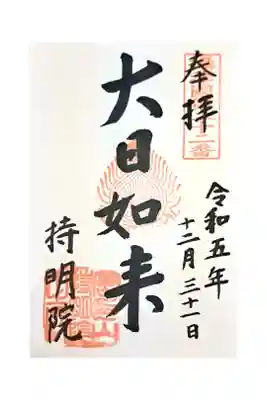 奉拝
大日如来
令和五年
十二月三十一日
持明院